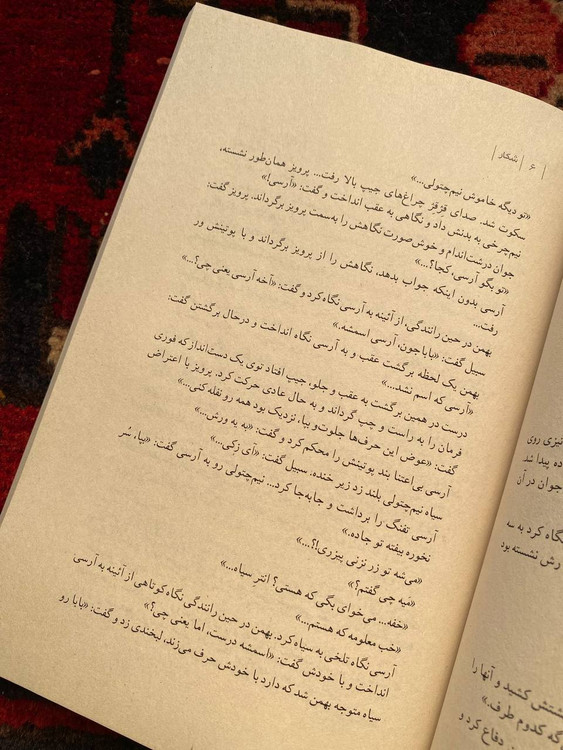 ۶ | شکار |
«تو دیگه خاموش نیم‌چتولی...»
سکوت شد. صدای قزقز چراغ‌های جیپ بالا رفت... پرویز همان‌طور نشسته،
نیم‌چرخی به بدنش داد و نگاهی به عقب انداخت و گفت: «آرسی!»
جوان درشت‌اندام و خوش‌صورت نگاهش را به‌سمت پرویز برگرداند. پرویز گفت:
«تو بگو آرسی، کجا؟...»
آرسی بدون اینکه جواب بدهد، نگاهش را از پرویز برگرداند و با پوتینش ور
رفت...
بهمن در حین رانندگی، از آئینه به آرسی نگاه کرد و گفت: «آخه آرسی یعنی چی؟...»
سبیل گفت: «باباجون، آرسی اسمشه.»
بهمن یک لحظه برگشت عقب و به آرسی نگاه انداخت و درحال برگشتن گفت:
«آرسی که اسم نشد...»
درست در همین برگشت به عقب و جلو، جیپ افتاد توی یک دست‌انداز که فوری
فرمان را به راست و چپ گرداند و به حال عادی حرکت کرد. پرویز با اعتراض
گفت: «عوض این حرف‌ها جلوت‌و بپا، نزدیک بود همه رو نفله کنی...»
آرسی بی‌اعتنا بند پوتینش را محکم کرد و گفت: «به یه ورش...»
سیاه نیم‌چتولی بلند زد زیر خنده. سبیل گفت: «آی زکی...»
آرسی تفنگ را برداشت و جابه‌جا کرد... نیم‌چتولی رو به آرسی گفت: «بپا، سُر
نخوره بیفته تو جاده.»
«می‌شه تو زر نزنی بیزری!؟...»
«مَیه چی گفتم؟»
«خفه... می‌خوای بگی که هستی؟ انتر سیاه...»
«خب معلومه که هستم...»
آرسی نگاه تلخی به سیاه کرد. بهمن در حین رانندگی نگاه کوتاهی از آئینه به آرسی
انداخت و با خودش گفت: «اسمشه درست، اما یعنی چی؟»
سیاه متوجه بهمن شد که دارد با خودش حرف می‌زند، لبخندی زد و گفت: «بابا رو
نیزی روی
ده پیدا شد
جوان در آن
نگاه کرد به سه
رش نشسته بود
شتش کشید و آنها را
گه کدوم طرف.»
دفاع کرد و